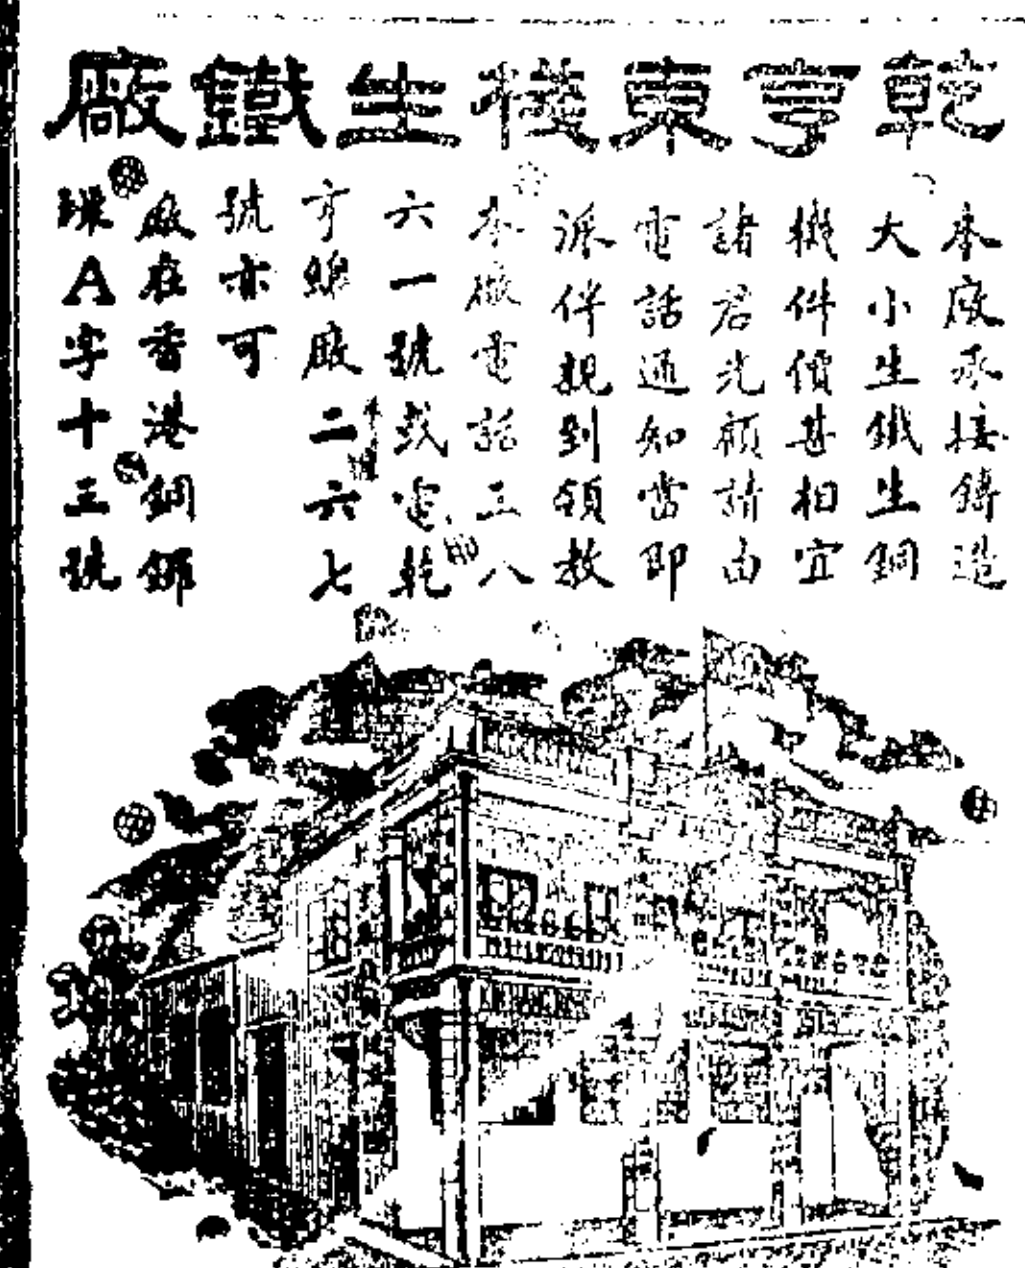 乾亨東棧生鐵廠
本廠承接鑄造
大小生鐵生銅
機件價甚相宜
諸君光顧請由
電話通知當即
派伴親到領教
本廠電話三八
六一號或電乾
亨線廠二六七
號亦可
廠在香港銅鑼
環A字十三號